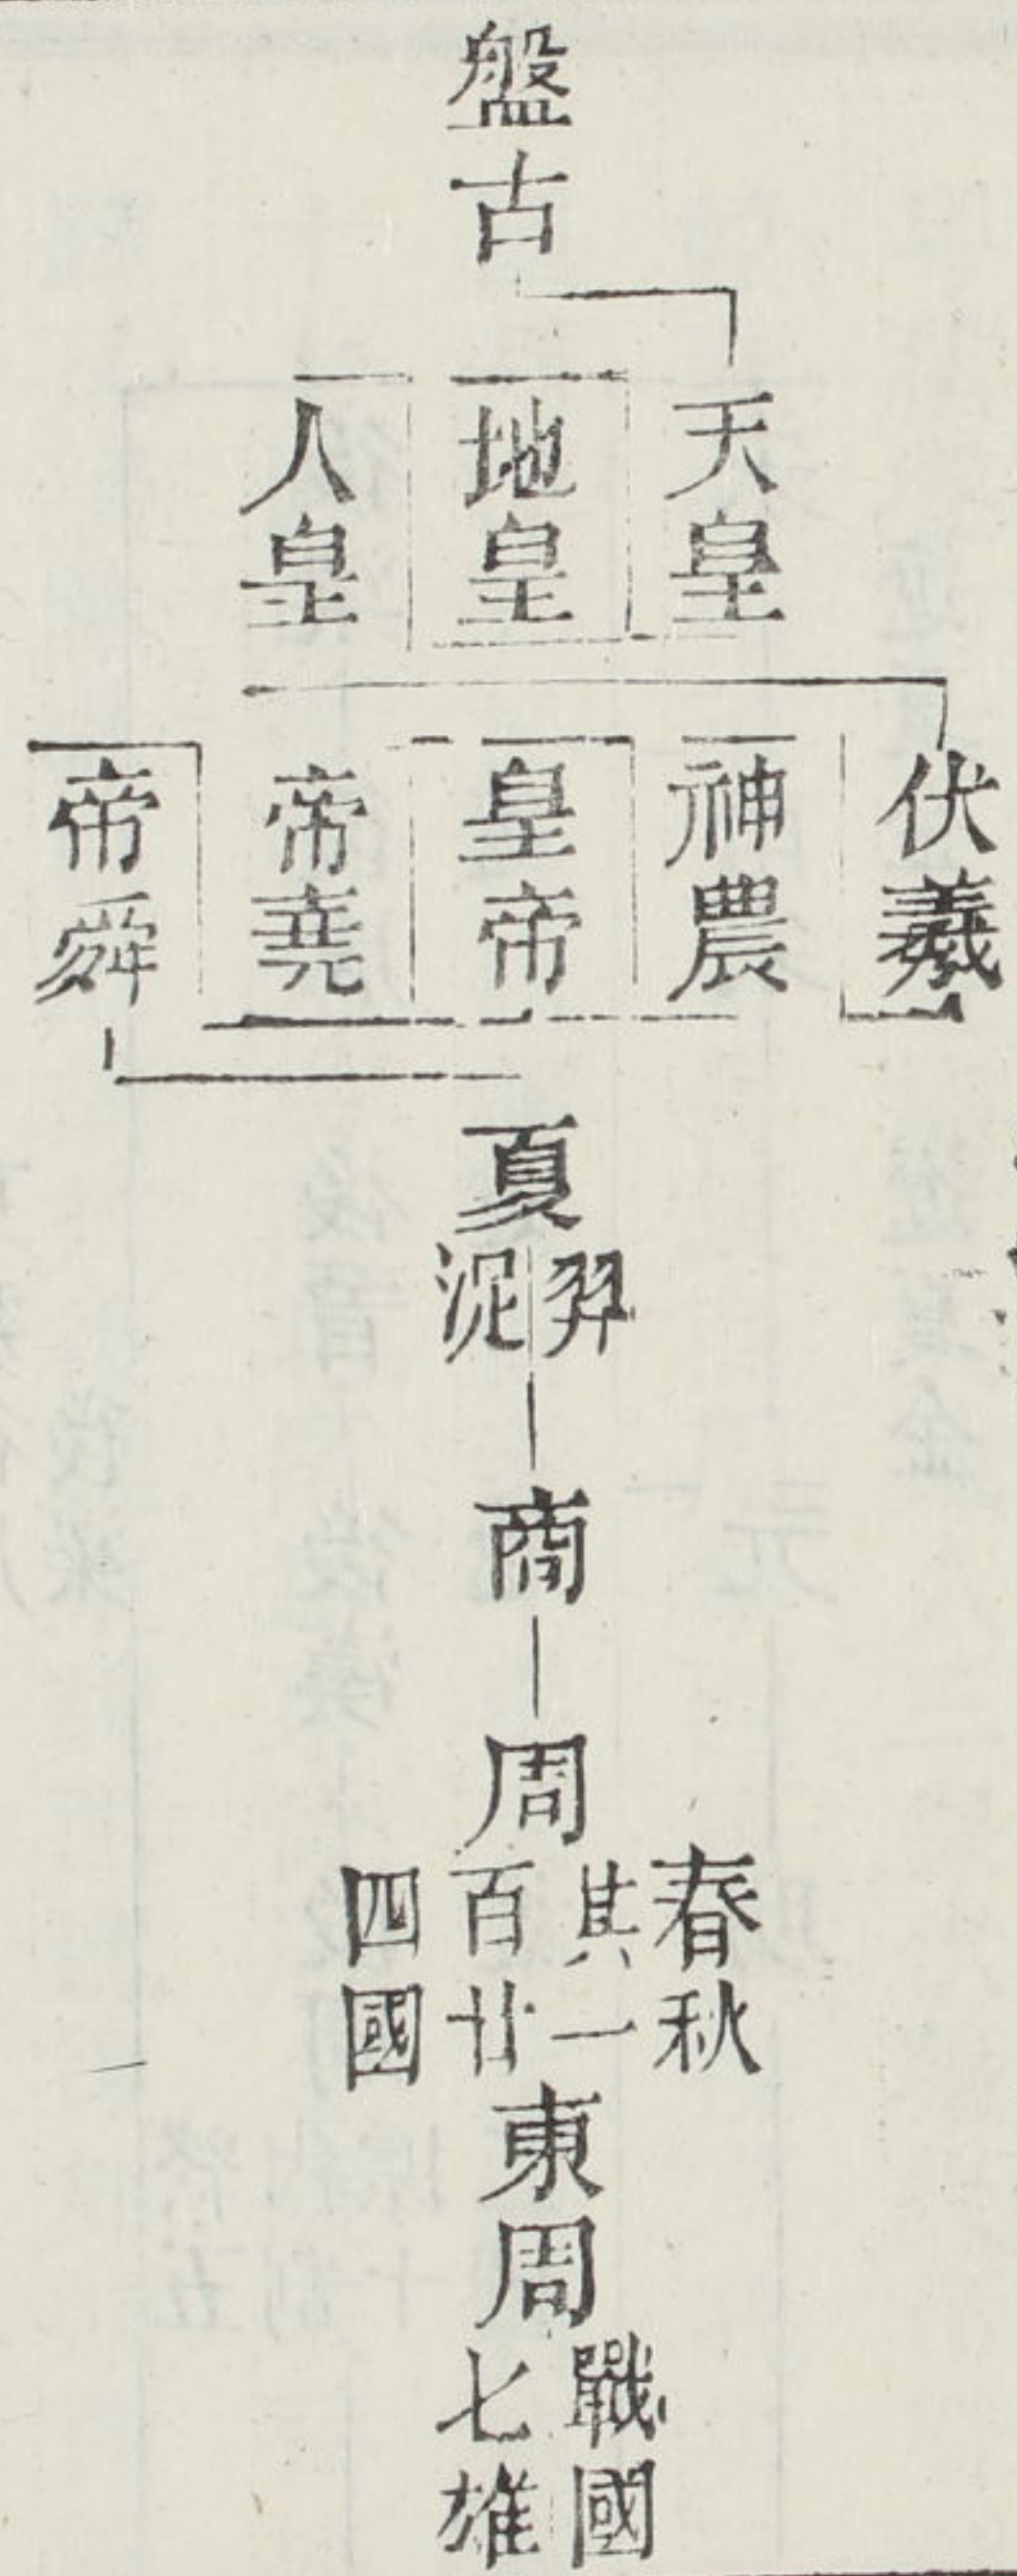 盤古
天皇
地皇
人皇
伏羲
神農
皇帝
帝堯
帝舜
夏
羿
浞
商
周
春秋
其一
百廿
四國
東周
戰國
七雄